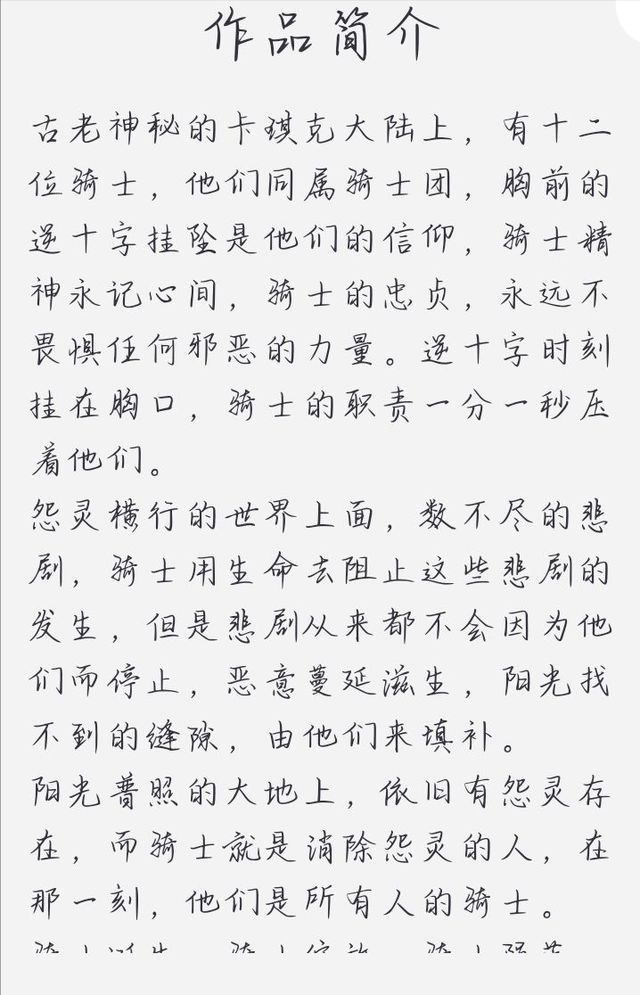 作品简介
古老神秘的卡琪克大陆上，有十二
位骑士，他们同属骑士团，胸前的
逆十字挂坠是他们的信仰，骑士精
神永记心间，骑士的忠贞，永远不
畏惧任何邪恶的力量。逆十字时刻
挂在胸口，骑士的职责一分一秒压
着他们。
怨灵横行的世界上面，数不尽的悲
剧，骑士用生命去阻止这些悲剧的
发生，但是悲剧从来都不会因为他
们而停止，恶意蔓延滋生，阳光找
不到的缝隙，由他们来填补。
阳光普照的大地上，依旧有怨灵存
在，而骑士就是消除怨灵的人，在
那一刻，他们是所有人的骑士。